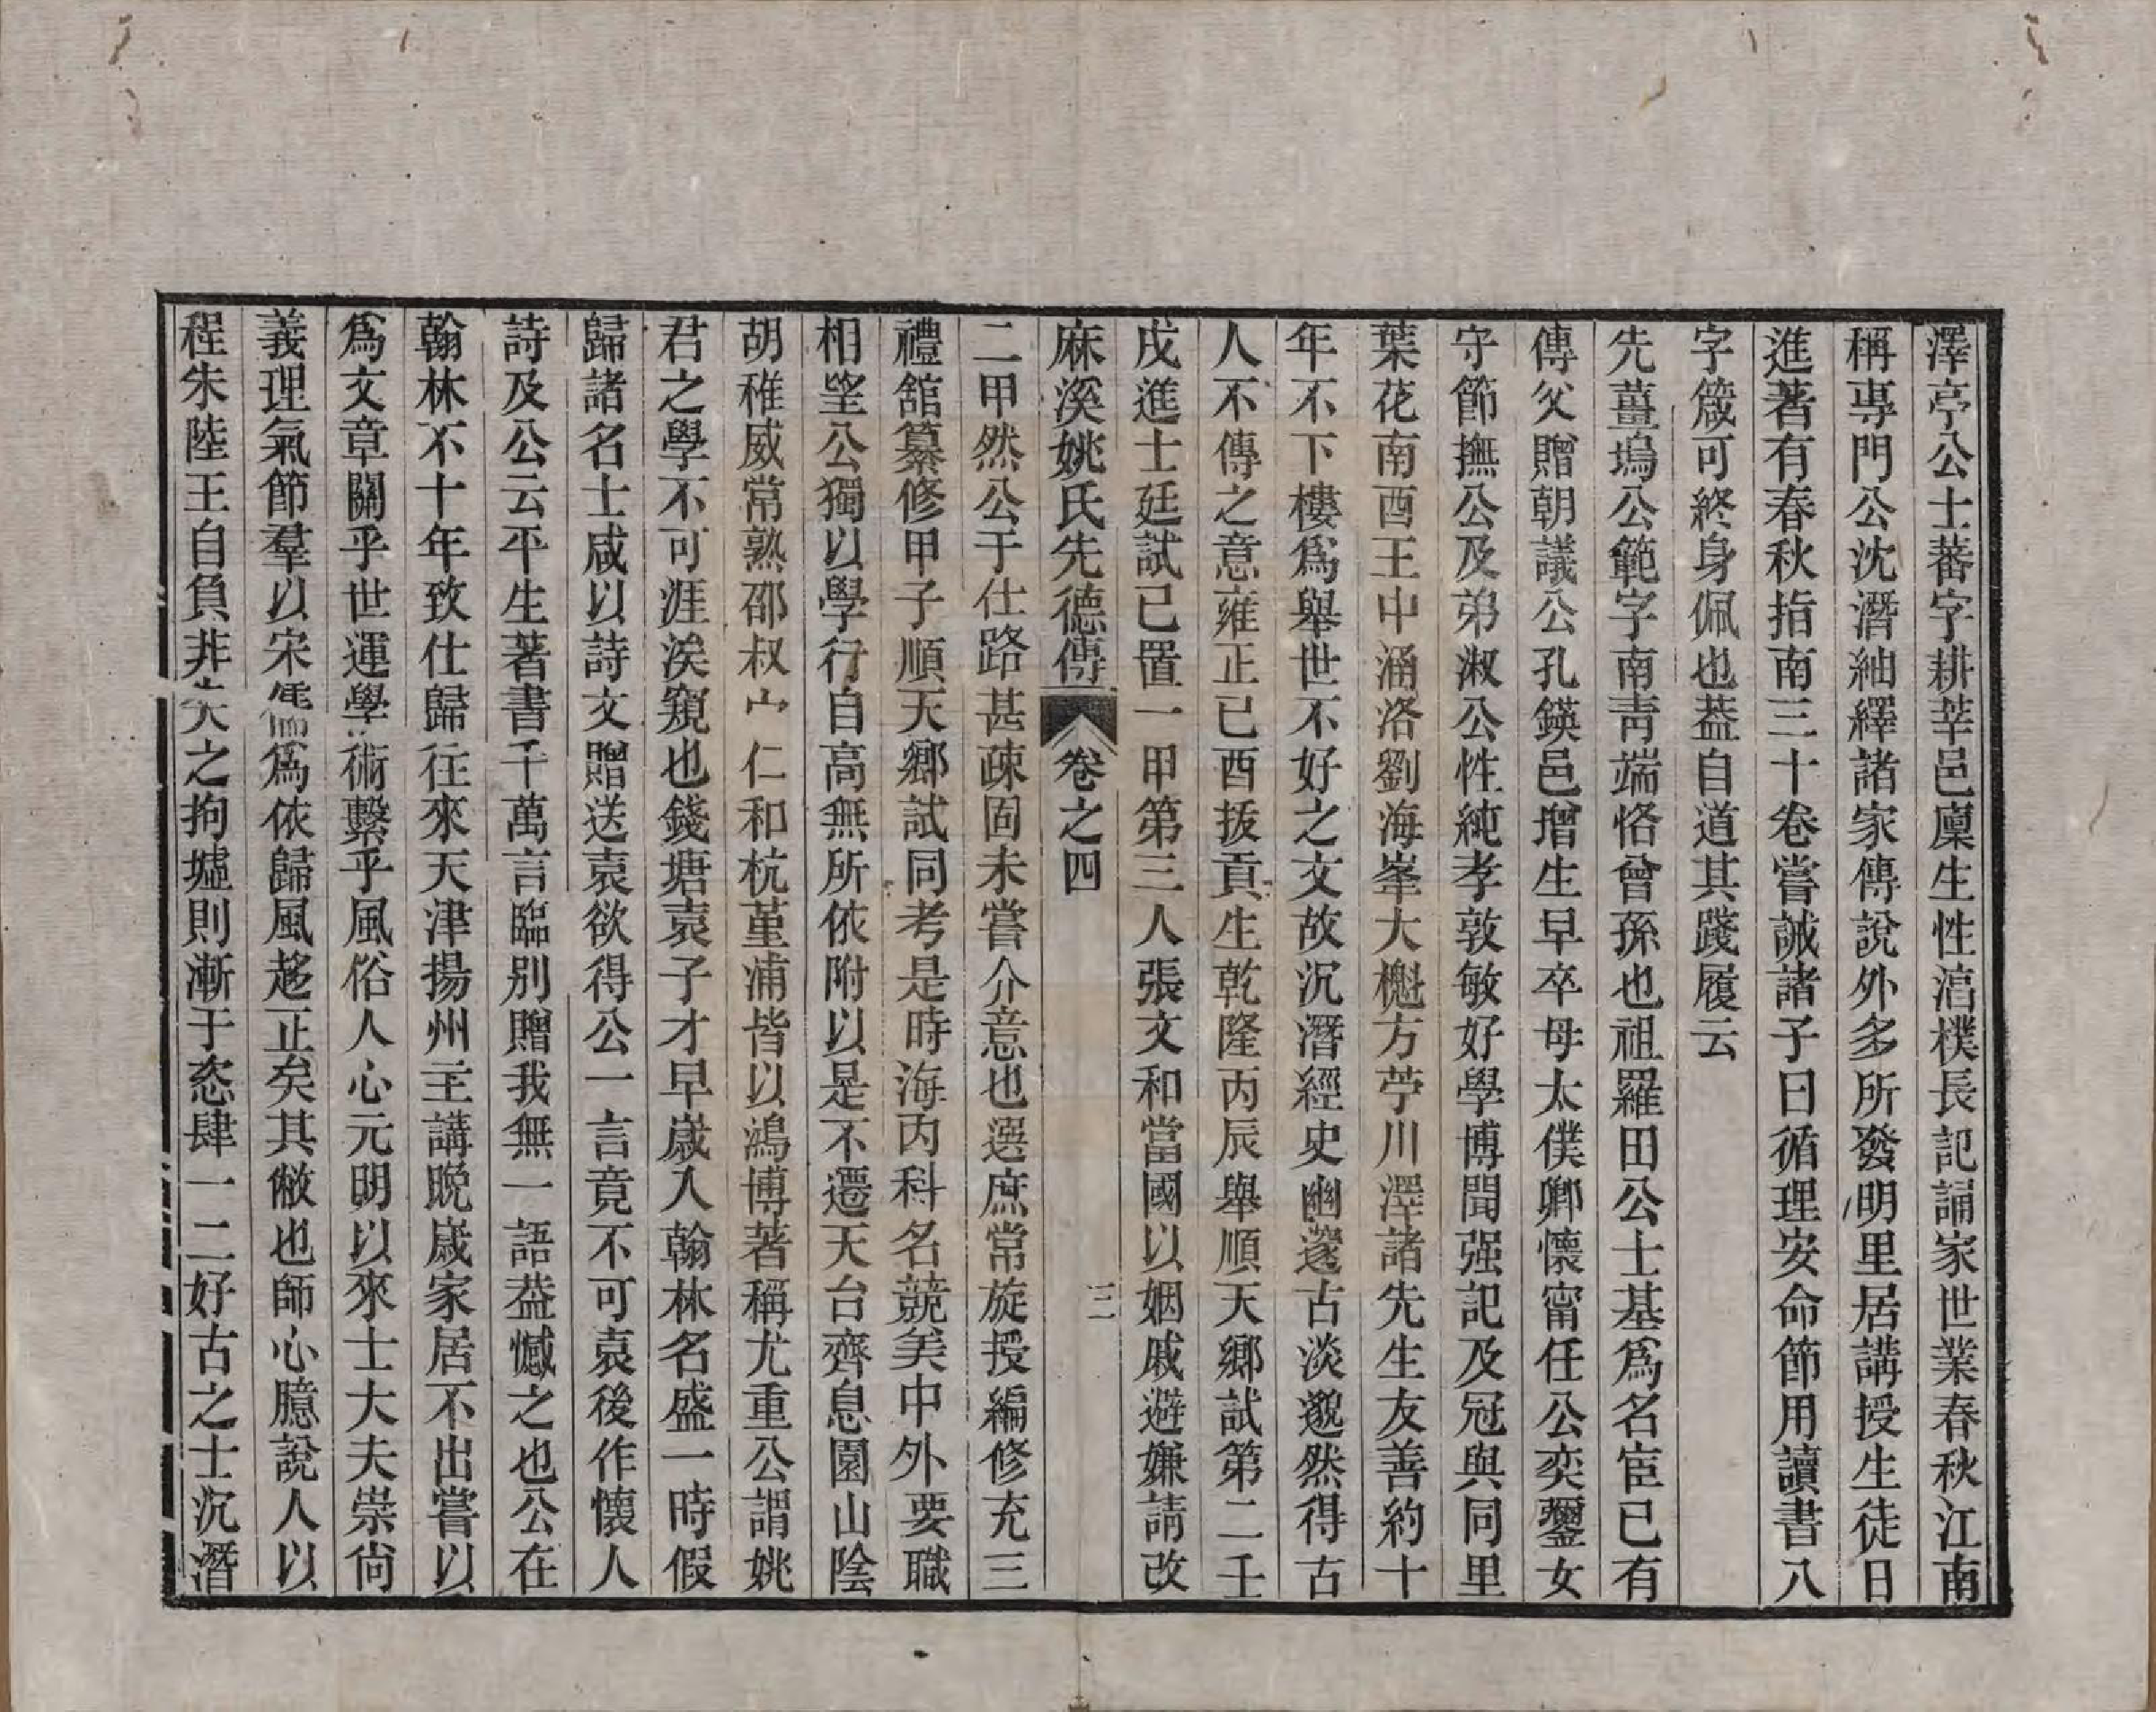 澤亭公士蕃字耕莘邑廩生性湻樸長記誦家世業春秋江南
稱專門公沈潛紬繹諸家傳說外多所發明里居講授生徒日
進著有春秋指南三十卷嘗誡諸子曰循理安命節用讀書八
字箴可終身佩也葢自道其踐履云
先薑塢公範字南靑端恪曾孫也祖羅田公士基爲名宦已有
傳父贈朝議公孔鍈邑增生早卒母太僕卿懷甯任公奕𨮻女
守節撫公及弟淑公性純孝敦敏好學博聞强記及冠與同里
葉花南酉王中涵洛劉海峯大櫆方苧川澤諸先生友善約十
年不下樓爲舉世不好之文故沉潛經史幽邃古淡邈然得古
人不傳之意雍正已酉拔貢生乾隆丙辰舉順天鄉試第二壬
戌進士廷試已置一甲第三人張文和當國以姻戚避嫌請改
麻溪姚氏先德傳 卷之四 三
二甲然公于仕路甚疎固未嘗介意也選庶常旋授編修充三
禮舘纂修甲子順天鄉試同考是時海內科名競美中外要職
相望公獨以學行自高無所依附以是不遷天台齊息園山陰
胡稚威常熟邵叔宀仁和杭堇浦皆以鴻博著稱尤重公謂姚
君之學不可涯涘窺也錢塘袁子才早歲入翰林名盛一時假
歸諸名士咸以詩文贈送袁欲得公一言竟不可袁後作懷人
詩及公云平生著書千萬言臨别贈我無一語葢憾之也公在
翰林不十年致仕歸往來天津揚州主講晚歲家居不出嘗以
爲文章關乎世運學術繫乎風俗人心元明以來士大夫崇尙
義理氣節羣以宋儒爲依歸風趍正矣其敝也師心臆說人以
程朱陸王自負非失之拘墟則漸于恣肆一二好古之士沉潛